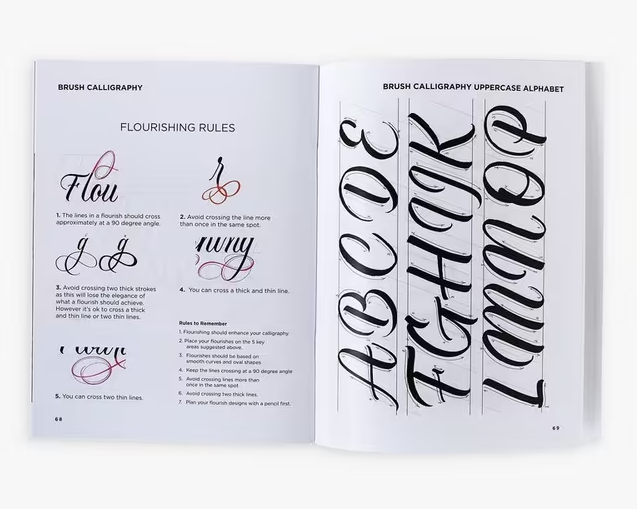 BRUSH CALLIGRAPHY
FLOURISHING RULES
Flou
1. The lines in a flourish should cross
approximately at a 90 degree angle.
2. Avoid crossing the line more
than once in the same spot.
g g
3. Avoid crossing two thick strokes
as this will lose the elegance of
what a flourish should achieve.
However it's ok to cross a thick
and thin line or two thin lines.
4. You can cross a thick and thin line.
5. You can cross two thin lines.
Rules to Remember
1. Flourishing should enhance your calligraphy
2. Place your flourishes on the 5 key
areas suggested above.
3. Flourishes should be based on
smooth curves and oval shapes
4. Keep the lines crossing at a 90 degree angle
5. Avoid crossing lines more than
once in the same spot
6. Avoid crossing two thick lines.
7. Plan your flourish designs with a pencil first.
68
BRUSH CALLIGRAPHY UPPERCASE ALPHABET
A B C D E
F G H I J K
L M N O P
69